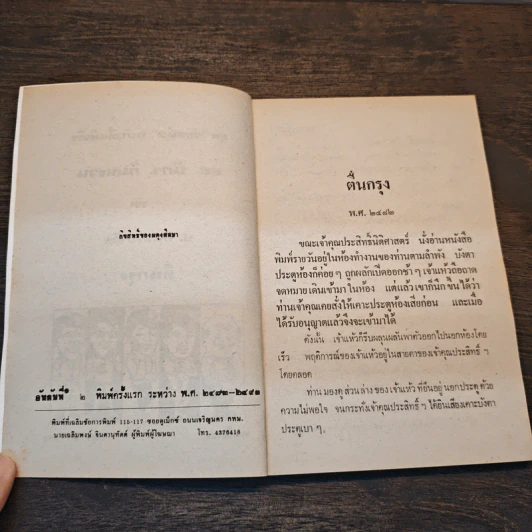 ลิขสิทธิ์ของผดุงศึกษา
อันดับที่ ๒ พิมพ์ครั้งแรก ระหว่าง พ.ศ. ๒๔๘๓–๒๔๙๑
พิมพ์ที่เฉลิมชัยการพิมพ์ 115-117 ซอยดูเม็กซ์ ถนนเจริญนคร กทม.
นายเฉลิมพงษ์ จินดานุทัตต์ ผู้พิมพ์ผู้โฆษณา โทร. 4376413
ตื่นกรุง
พ.ศ. ๒๔๘๒
ขณะเจ้าคุณประสิทธิ์นิติศาสตร์ นั่งอ่านหนังสือ
พิมพ์รายวันอยู่ในห้องทำงานของท่านตามลำพัง บังตา
ประตูห้องก็ค่อย ๆ ถูกผลักเปิดออกช้า ๆ เจ้าแห้วถือถาด
จดหมายเดินเข้ามาในห้อง แต่แล้วเขาก็นึกขึ้นได้ว่า
ท่านเจ้าคุณเคยสั่งให้เคาะประตูห้องเสียก่อน และเมื่อ
ได้รับอนุญาตแล้วจึงจะเข้ามาได้
ดังนั้น เจ้าแห้วก็รีบหมุนผลันพาตัวออกไปนอกห้องโดย
เร็ว พฤติการณ์ของเจ้าแห้วอยู่ในสายตาของเจ้าคุณประสิทธิ์ ฯ
โดยตลอด
ท่านมองดูส่วนล่างของเจ้าแห้วที่ยืนอยู่นอกประตูด้วย
ความไม่พอใจ จนกระทั่งเจ้าคุณประสิทธิ์ ฯ ได้ยินเสียงเคาะบังตา
ประตูเบา ๆ